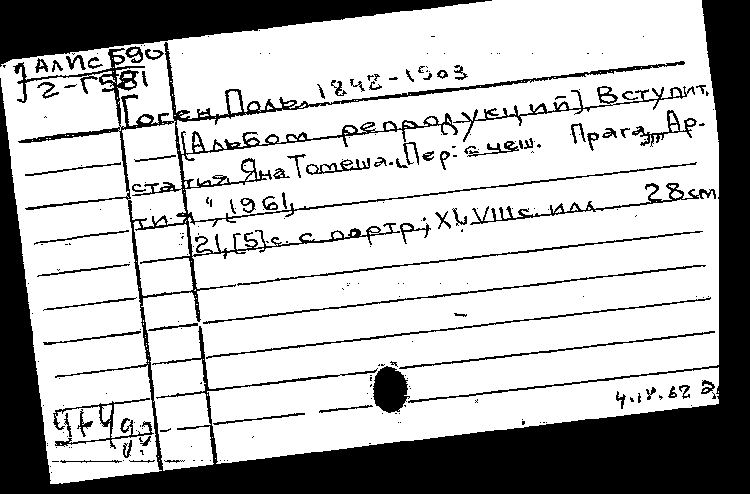 АлИс 590
2-Г581
Гоген, Поль. 1848-1903
[Альбом репродукций]. Вступит.
статия Яна Томеша. Пер. с чеш. Прага, „Ар-
тия“, [1961].
21, [5] с. с портр.; XLVIII с. илл. 28 см